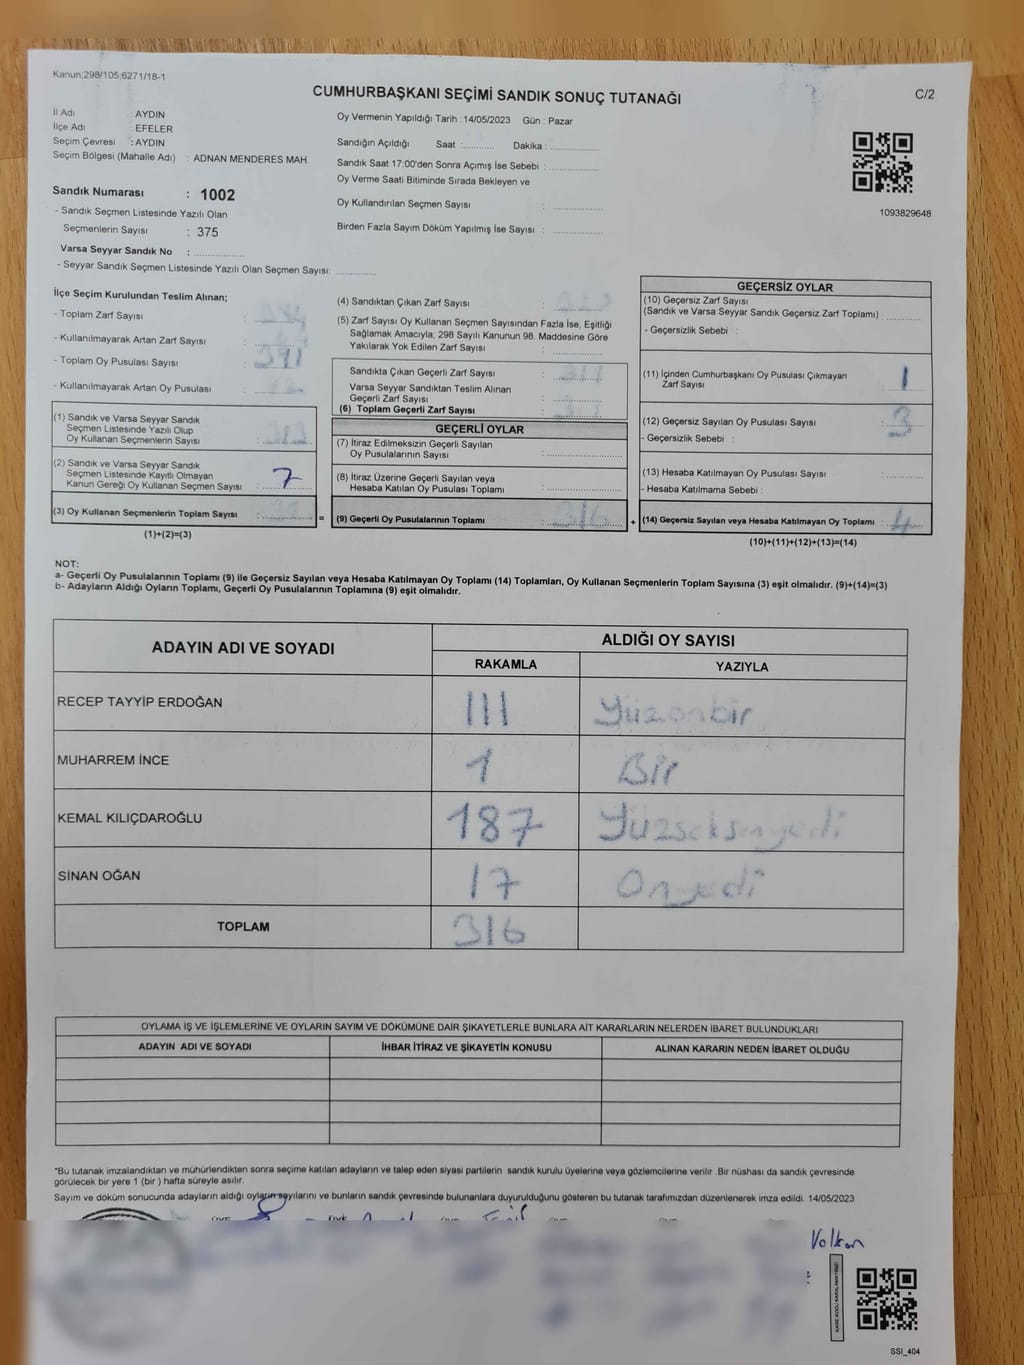 Kanun:298/105;6271/18-1
CUMHURBAŞKANI SEÇİMİ SANDIK SONUÇ TUTANAĞI
C/2
İl Adı : AYDIN
İlçe Adı : EFELER
Seçim Çevresi : AYDIN
Seçim Bölgesi (Mahalle Adı) : ADNAN MENDERES MAH.
Sandık Numarası : 1002
- Sandık Seçmen Listesinde Yazılı Olan
Seçmenlerin Sayısı : 375
Varsa Seyyar Sandık No :
- Seyyar Sandık Seçmen Listesinde Yazılı Olan Seçmen Sayısı:
Oy Vermenin Yapıldığı Tarih :14/05/2023 Gün : Pazar
Sandığın Açıldığı Saat : Dakika :
Sandık Saat 17:00'den Sonra Açımış İse Sebebi :
Oy Verme Saati Bitiminde Sırada Bekleyen ve
Oy Kullandırılan Seçmen Sayısı :
Birden Fazla Sayım Döküm Yapılmış İse Sayısı :
1093829648
İlçe Seçim Kurulundan Teslim Alınan;
- Toplam Zarf Sayısı :
- Kullanılmayarak Artan Zarf Sayısı :
- Toplam Oy Pusulası Sayısı : 391
- Kullanılmayarak Artan Oy Pusulası :
(1) Sandık ve Varsa Seyyar Sandık
Seçmen Listesinde Yazılı Olup
Oy Kullanan Seçmenlerin Sayısı : 313
(2) Sandık ve Varsa Seyyar Sandık
Seçmen Listesinde Kayıtlı Olmayan
Kanun Gereği Oy Kullanan Seçmen Sayısı : 7
(3) Oy Kullanan Seçmenlerin Toplam Sayısı :
(1)+(2)=(3)
(4) Sandıktan Çıkan Zarf Sayısı :
(5) Zarf Sayısı Oy Kullanan Seçmen Sayısından Fazla İse, Eşitliği
Sağlamak Amacıyla; 298 Sayılı Kanunun 98. Maddesine Göre
Yakılarak Yok Edilen Zarf Sayısı :
Sandıkta Çıkan Geçerli Zarf Sayısı :
Varsa Seyyar Sandıktan Teslim Alınan
Geçerli Zarf Sayısı :
(6) Toplam Geçerli Zarf Sayısı :
GEÇERLİ OYLAR
(7) İtiraz Edilmeksizin Geçerli Sayılan
Oy Pusulalarının Sayısı :
(8) İtiraz Üzerine Geçerli Sayılan veya
Hesaba Katılan Oy Pusulası Toplamı :
= (9) Geçerli Oy Pusulalarının Toplamı : 316
GEÇERSİZ OYLAR
(10) Geçersiz Zarf Sayısı
(Sandık ve Varsa Seyyar Sandık Geçersiz Zarf Toplamı) :
- Geçersizlik Sebebi :
(11) İçinden Cumhurbaşkanı Oy Pusulası Çıkmayan
Zarf Sayısı : 1
(12) Geçersiz Sayılan Oy Pusulası Sayısı : 3
- Geçersizlik Sebebi :
(13) Hesaba Katılmayan Oy Pusulası Sayısı :
- Hesaba Katılmama Sebebi :
+ (14) Geçersiz Sayılan veya Hesaba Katılmayan Oy Toplamı : 4
(10)+(11)+(12)+(13)=(14)
NOT:
a- Geçerli Oy Pusulalarının Toplamı (9) ile Geçersiz Sayılan veya Hesaba Katılmayan Oy Toplamı (14) Toplamları, Oy Kullanan Seçmenlerin Toplam Sayısına (3) eşit olmalıdır. (9)+(14)=(3)
b- Adayların Aldığı Oyların Toplamı, Geçerli Oy Pusulalarının Toplamına (9) eşit olmalıdır.
ADAYIN ADI VE SOYADI
ALDIĞI OY SAYISI
RAKAMLA YAZIYLA
RECEP TAYYİP ERDOĞAN 111 Yüzonbir
MUHARREM İNCE 1 Bir
KEMAL KILIÇDAROĞLU 187 Yüzseksenyedi
SİNAN OĞAN 17 Onyedi
TOPLAM 316
OYLAMA İŞ VE İŞLEMLERİNE VE OYLARIN SAYIM VE DÖKÜMÜNE DAİR ŞİKAYETLERLE BUNLARA AİT KARARLARIN NELERDEN İBARET BULUNDUKLARI
ADAYIN ADI VE SOYADI İHBAR İTİRAZ VE ŞİKAYETİN KONUSU ALINAN KARARIN NEDEN İBARET OLDUĞU
*Bu tutanak imzalandıktan ve mühürlendikten sonra seçime katılan adayların ve talep eden siyasi partilerin sandık kurulu üyelerine veya gözlemcilerine verilir .Bir nüshası da sandık çevresinde
görülecek bir yere 1 (bir ) hafta süreyle asılır.
Sayım ve döküm sonucunda adayların aldığı oyların sayılarını ve bunların sandık çevresinde bulunanlara duyurulduğunu gösteren bu tutanak tarafımızdan düzenlenerek imza edildi. 14/05/2023
Volkan
KARE KODU KARALAMAYINIZ!
SSI_404